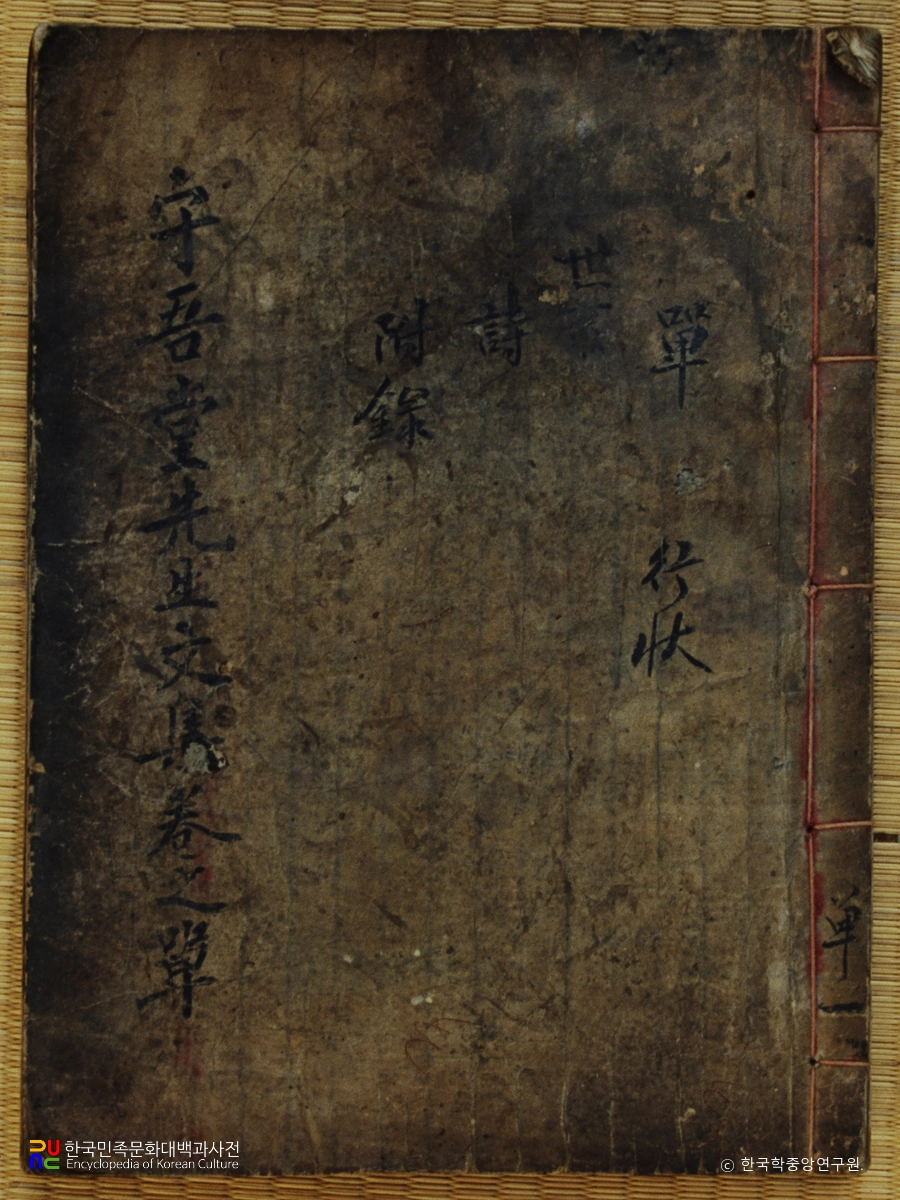 單 行狀
世系
詩
附錄
守吾堂先生文集卷之單
单一
한국민족문화대백과사전
Encyclopedia of Korean Culture
© 한국학중앙연구원